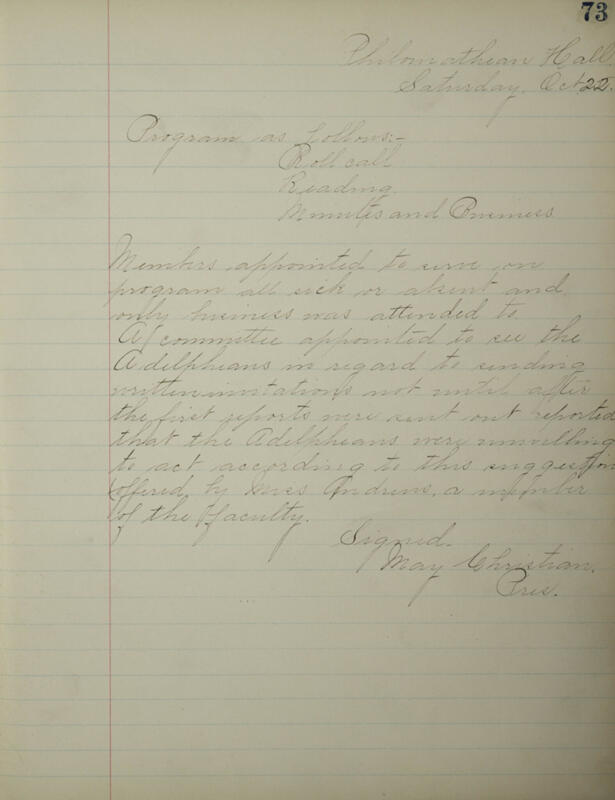 73
Philomathean Hall.
Saturday, Oct 22.
Program as follows:-
Roll call
Reading
Minutes and Business
Members appointed to serve on
program all sick or absent and
only business was attended to.
A committee appointed to see the
Adelpheans in regard to sending
written invitations not until after
the first reports were sent out reported
that the Adelpheans were unwilling
to act according to this suggestion
offered by Miss Andrews, a member
of the faculty.
Signed.
May Christian.
Pres.